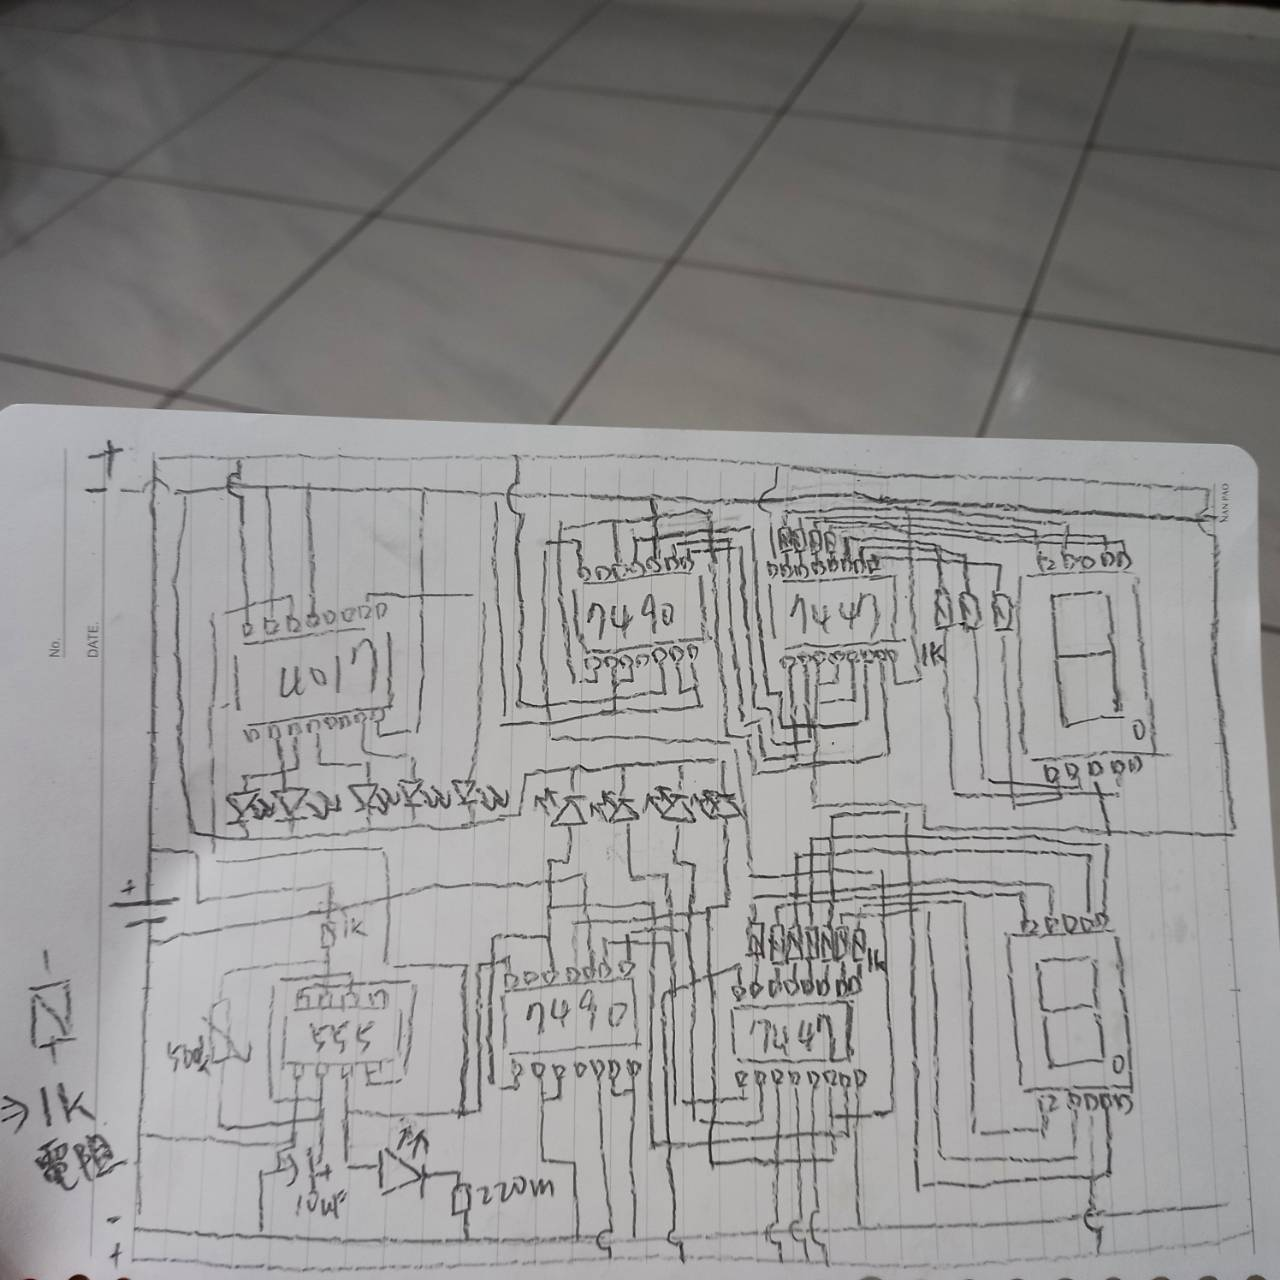 No.
DATE.
NAN PAO
+
-
4017
7490
7447
1K
+
1K
555
500k
7490
7447
1K
10uF
220m
+ -
⇒ 1K
電阻
-
+